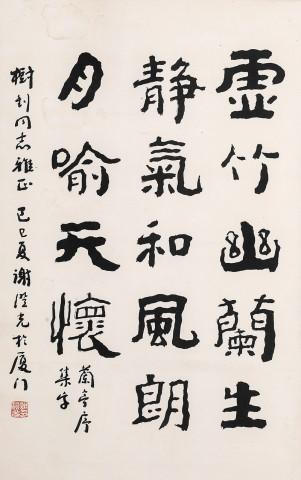 虚竹幽蘭生
静氣和風朗
月喻天懷
蘭亭序
集字
樹釗同志雅正 己巳夏 謝澄光於厦门